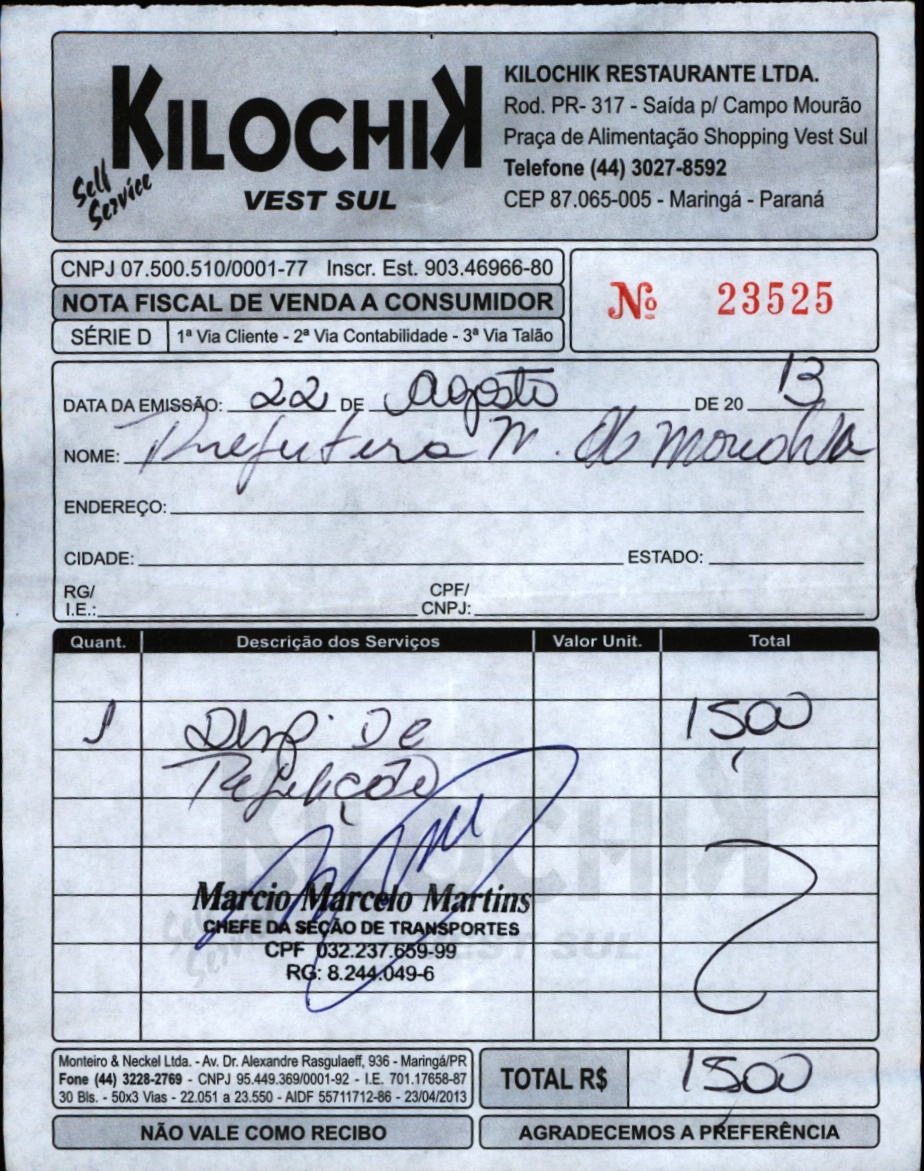 KILOCHIK
Self Service
VEST SUL
KILOCHIK RESTAURANTE LTDA.
Rod. PR- 317 - Saída p/ Campo Mourão
Praça de Alimentação Shopping Vest Sul
Telefone (44) 3027-8592
CEP 87.065-005 - Maringá - Paraná
CNPJ 07.500.510/0001-77 Inscr. Est. 903.46966-80
NOTA FISCAL DE VENDA A CONSUMIDOR
SÉRIE D 1ª Via Cliente - 2ª Via Contabilidade - 3ª Via Talão
Nº 23525
DATA DA EMISSÃO: 22 DE Agosto DE 20 13
NOME: Prefeitura M. de
ENDEREÇO:
CIDADE: ESTADO:
RG/ I.E.: CPF/ CNPJ:
Quant. Descrição dos Serviços Valor Unit. Total
1 Desp. De 15,00
Refeição
Marcio Marcelo Martins
CHEFE DA SEÇÃO DE TRANSPORTES
CPF 032.237.659-99
RG: 8.244.049-6
Monteiro & Neckel Ltda. - Av. Dr. Alexandre Rasgulaeff, 936 - Maringá/PR
Fone (44) 3228-2769 - CNPJ 95.449.369/0001-92 - I.E. 701.17658-87
30 Bls. - 50x3 Vias - 22.051 a 23.550 - AIDF 55711712-86 - 23/04/2013
TOTAL R$ 15,00
NÃO VALE COMO RECIBO
AGRADECEMOS A PREFERÊNCIA